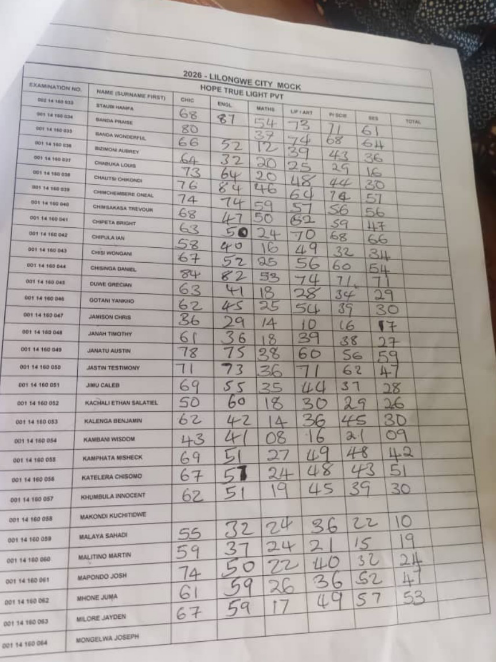 2026 - LILONGWE CITY MOCK
HOPE TRUE LIGHT PVT
EXAMINATION NO. NAME (SURNAME FIRST) CHIC ENGL MATHS TOTAL
033 HANIFA 68 87 54 73 71 61
001 14 160 034 BANDA PRAISE 80 37 74 68 64
001 14 160 035 BANDA WONDERFUL 66 52 12 39 43 36
001 14 160 036 AUBREY 64 32 20 25 29 16
001 14 160 037 CHABUKA LOUIS 73 64 20 48 44 30
001 14 160 038 CHIKONDI 76 84 46 64 74 57
001 14 160 039 CHIMCHEMBERE ONEAL 74 74 59 57 56 56
001 14 160 040 CHIMSAKASA TREVOUR 68 47 50 62 39 47
001 14 160 041 CHIPETA BRIGHT 63 50 24 70 68 66
001 14 160 042 CHIPULA IAN 58 40 16 49 32 34
001 14 160 043 CHISI WONGANI 67 52 25 56 60 54
001 14 160 044 CHISINGA DANIEL 84 82 53 74 71 77
001 14 160 045 DUWE GRECIAN 63 41 13 28 34 29
001 14 160 046 GOTANI YANKHO 62 45 25 54 39 30
001 14 160 047 JAMISON CHRIS 36 29 14 10 16 17
001 14 160 048 JANAH TIMOTHY 61 36 18 39 38 27
001 14 160 049 JANATU AUSTIN 78 75 38 60 56 59
001 14 160 050 JASTIN TESTIMONY 71 73 36 71 62 47
001 14 160 051 JIMU CALEB 69 55 35 44 37 28
001 14 160 052 KACHALI ETHAN SALATIEL 50 60 18 30 29 26
001 14 160 053 KALENGA BENJAMIN 62 42 14 36 45 30
001 14 160 054 KAMBANI WISDOM 43 41 08 16 21 09
001 14 160 055 KAMPHATA MISHECK 69 51 27 49 48 42
001 14 160 056 KATELERA CHISOMO 67 57 24 48 43 51
001 14 160 057 KHUMBULA INNOCENT 62 51 19 45 39 30
001 14 160 058 MAKONDI KUCHITIDWE
001 14 160 059 MALAYA SAHADI 55 32 24 36 22 10
001 14 160 060 MALITINO MARTIN 59 37 24 21 15 19
001 14 160 061 MAPONDO JOSH 74 50 22 40 32 24
001 14 160 062 MHONE JUMA 61 59 26 36 52 47
001 14 160 063 MILORE JAYDEN 67 59 17 49 57 53
001 14 160 064 MONGELWA JOSEPH